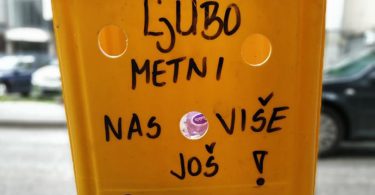 LJUBO
METNI
NAS VIŠE
JOŠ !